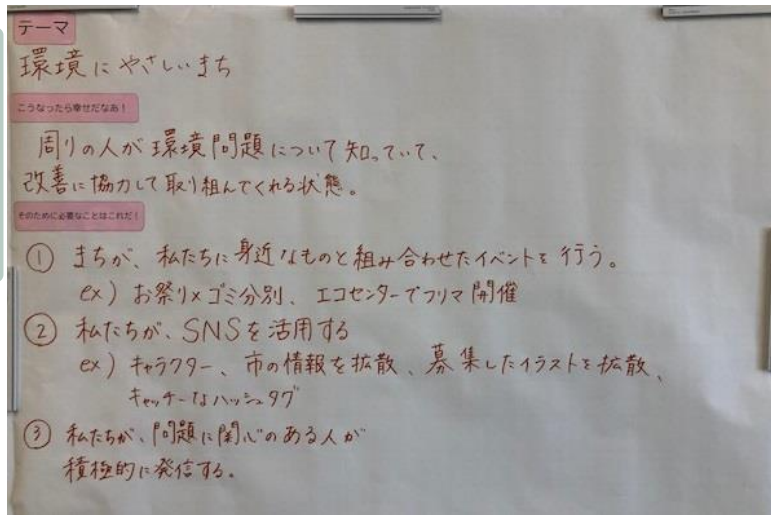 テーマ
環境にやさしいまち
こうなったら幸せだなあ！
周りの人が環境問題について知っていて、
改善に協力して取り組んでくれる状態。
そのために必要なことはこれだ！
① まちが、私たちに身近なものと組み合わせたイベントを行う。
ex) お祭り×ゴミ分別、エコセンターでフリマ開催
② 私たちが、SNSを活用する
ex) キャラクター、市の情報を拡散、募集したイラストを拡散、
キャッチーなハッシュタグ
③ 私たちが、問題に関心のある人が
積極的に発信する。